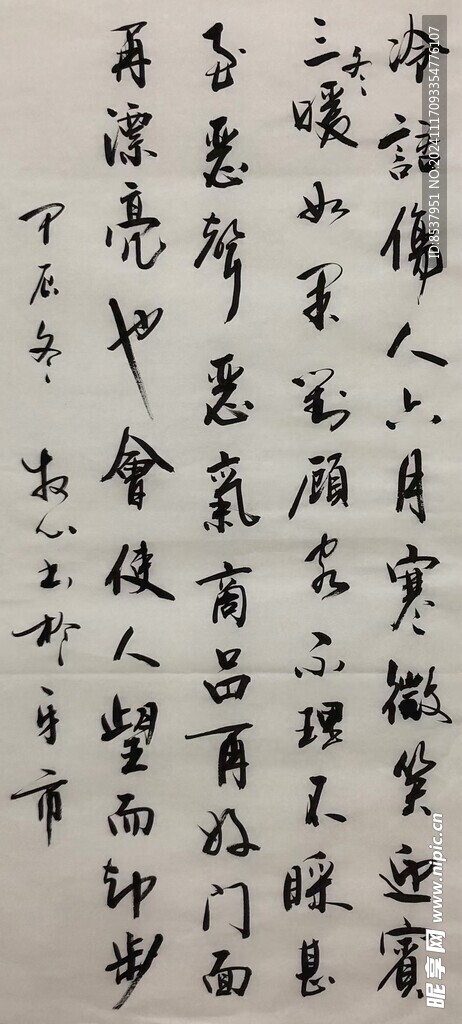 冷語傷人六月寒微笑迎賓
三冬暖如果對顧客不理不睬甚
至惡聲惡氣商品再好门面
再漂亮也會使人望而却步
甲辰冬 牧心书於牙市
ID:8537951 NO:20241117093354776107
昵享网 www.nipic.cn